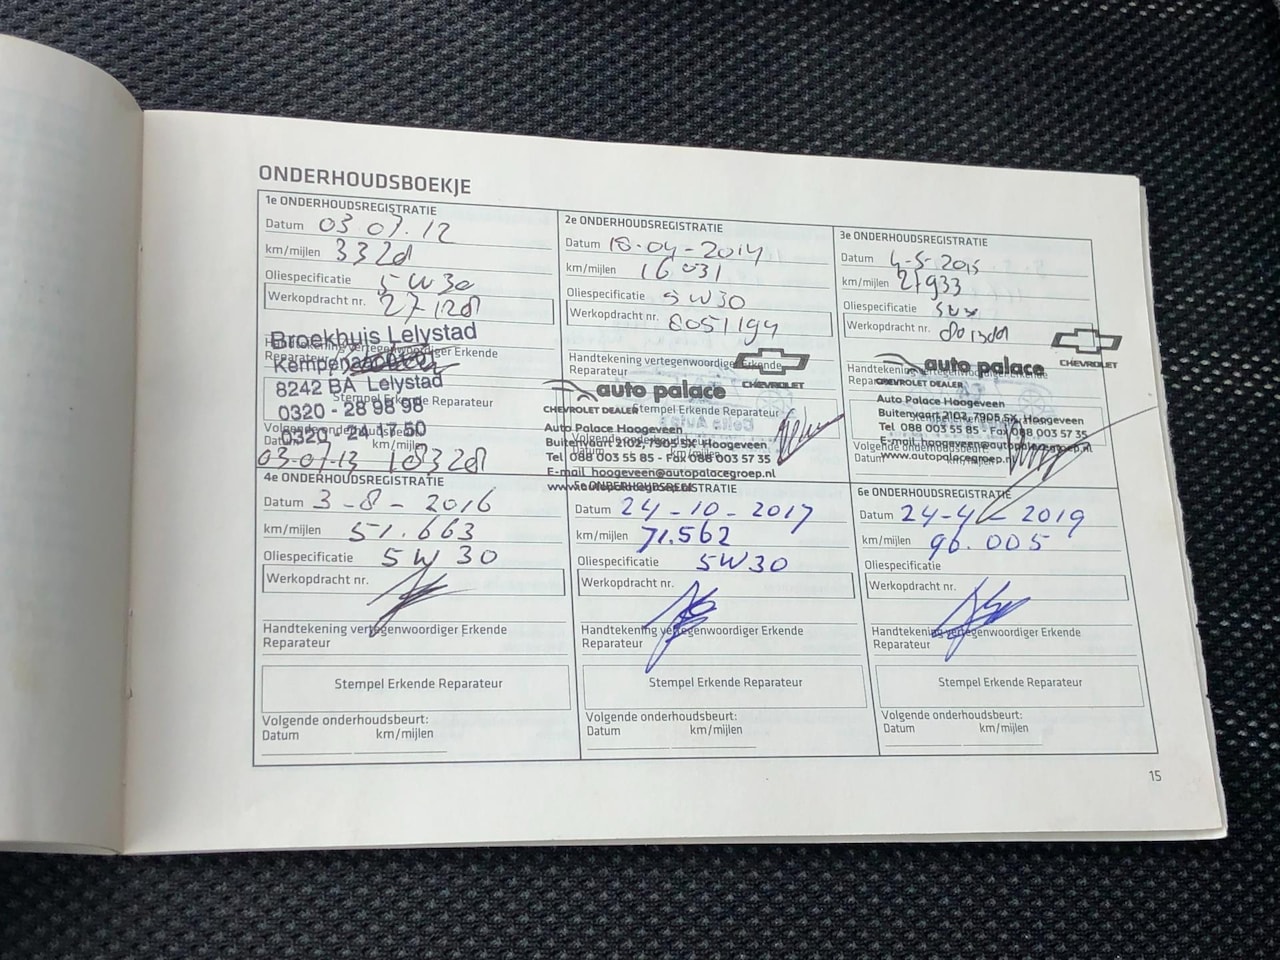 ONDERHOUDSBOEKJE
1e ONDERHOUDSREGISTRATIE
Datum 03.07.12
km/mijlen 3328
Oliespecificatie 5W30
Werkopdracht nr. 27128
Broekhuis Lelystad
Handtekening vertegenwoordiger Erkende
Reparateur
8242 BA Lelystad
Stempel Erkende Reparateur
0320 - 28 98 98
0320 - 24 17 50
Volgende onderhoudsbeurt:
Datum km/mijlen
03-07-13 18328
2e ONDERHOUDSREGISTRATIE
Datum 18-04-2014
km/mijlen 16031
Oliespecificatie 5W30
Werkopdracht nr. 8051194
Handtekening vertegenwoordiger Erkende
Reparateur
CHEVROLET
auto palace
CHEVROLET DEALER
Stempel Erkende Reparateur
Auto Palace Hoogeveen
Buitenvaart 2102, 7905 SX Hoogeveen
Tel 088 003 55 85 - Fax 088 003 57 35
E-mail hoogeveen@autopalacegroep.nl
3e ONDERHOUDSREGISTRATIE
Datum 4-5-2015
km/mijlen 27933
Oliespecificatie
Werkopdracht nr.
CHEVROLET
auto palace
Handtekening vertegenwoordiger Erkende
Reparateur
CHEVROLET DEALER
Auto Palace Hoogeveen
Buitenvaart 2102, 7905 SX Hoogeveen
Tel 088 003 55 85 - Fax 088 003 57 35
E-mail hoogeveen@autopalacegroep.nl
Volgende onderhoudsbeurt:
www.autopalacegroep.nl
Datum km/mijlen
4e ONDERHOUDSREGISTRATIE
Datum 3-8-2016
km/mijlen 51.663
Oliespecificatie 5W30
Werkopdracht nr.
Handtekening vertegenwoordiger Erkende
Reparateur
Stempel Erkende Reparateur
Volgende onderhoudsbeurt:
Datum km/mijlen
5e ONDERHOUDSREGISTRATIE
Datum 24-10-2017
km/mijlen 71.562
Oliespecificatie 5W30
Werkopdracht nr.
Handtekening vertegenwoordiger Erkende
Reparateur
Stempel Erkende Reparateur
Volgende onderhoudsbeurt:
Datum km/mijlen
6e ONDERHOUDSREGISTRATIE
Datum 24-4-2019
km/mijlen 96.005
Oliespecificatie
Werkopdracht nr.
Handtekening vertegenwoordiger Erkende
Reparateur
Stempel Erkende Reparateur
Volgende onderhoudsbeurt:
Datum km/mijlen
15